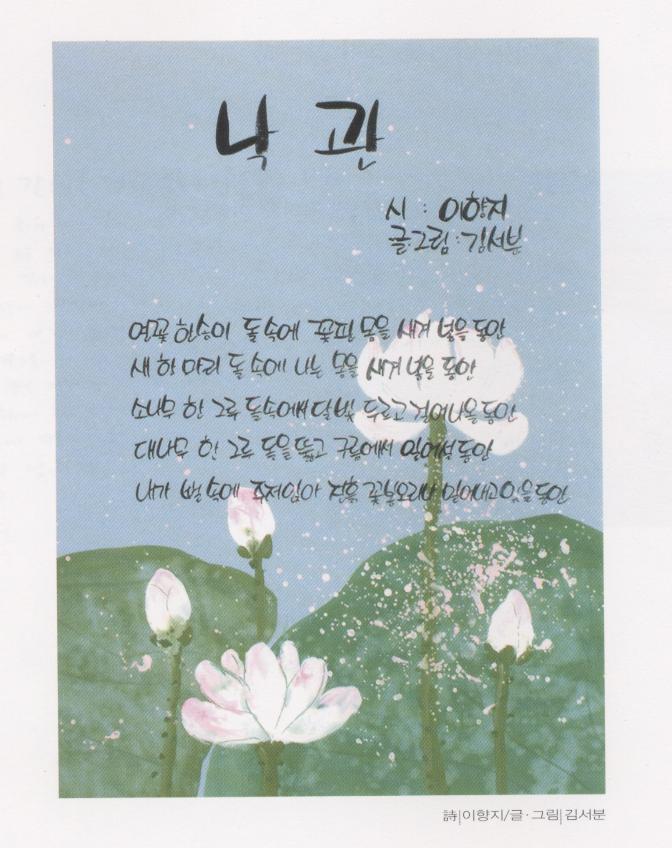 낙 관
시 : 이향지
글그림 : 김서분
연꽃 한송이 돌 속에 꽃핀 몸을 새겨 넣을 동안
새 한 마리 돌 속에 나는 몸을 새겨 넣을 동안
소나무 한 그루 돌속에서 달빛 두르고 걸어나올 동안
대나무 한 그루 돌을 뚫고 구름에서 일어설 동안
내가 뻘 속에 주저앉아 진흙 꽃봉오리나 밀어내고 있을 동안
詩|이향지/글·그림|김서분